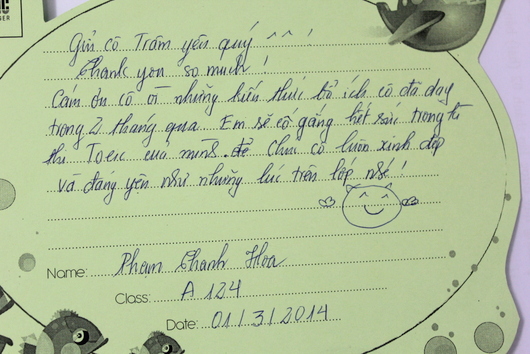 Gửi cô Trâm yêu quý ^^!
Thank you so much!
Cám ơn cô vì những kiến thức bổ ích cô đã dạy
trong 2 tháng qua. Em sẽ cố gắng hết sức trong kì
thi Toeic của mình. Chúc cô luôn xinh đẹp
và đáng yêu như những lúc trên lớp nhé!
Name: Pham Thanh Hoa
Class: A 124
Date: 01/3/2014